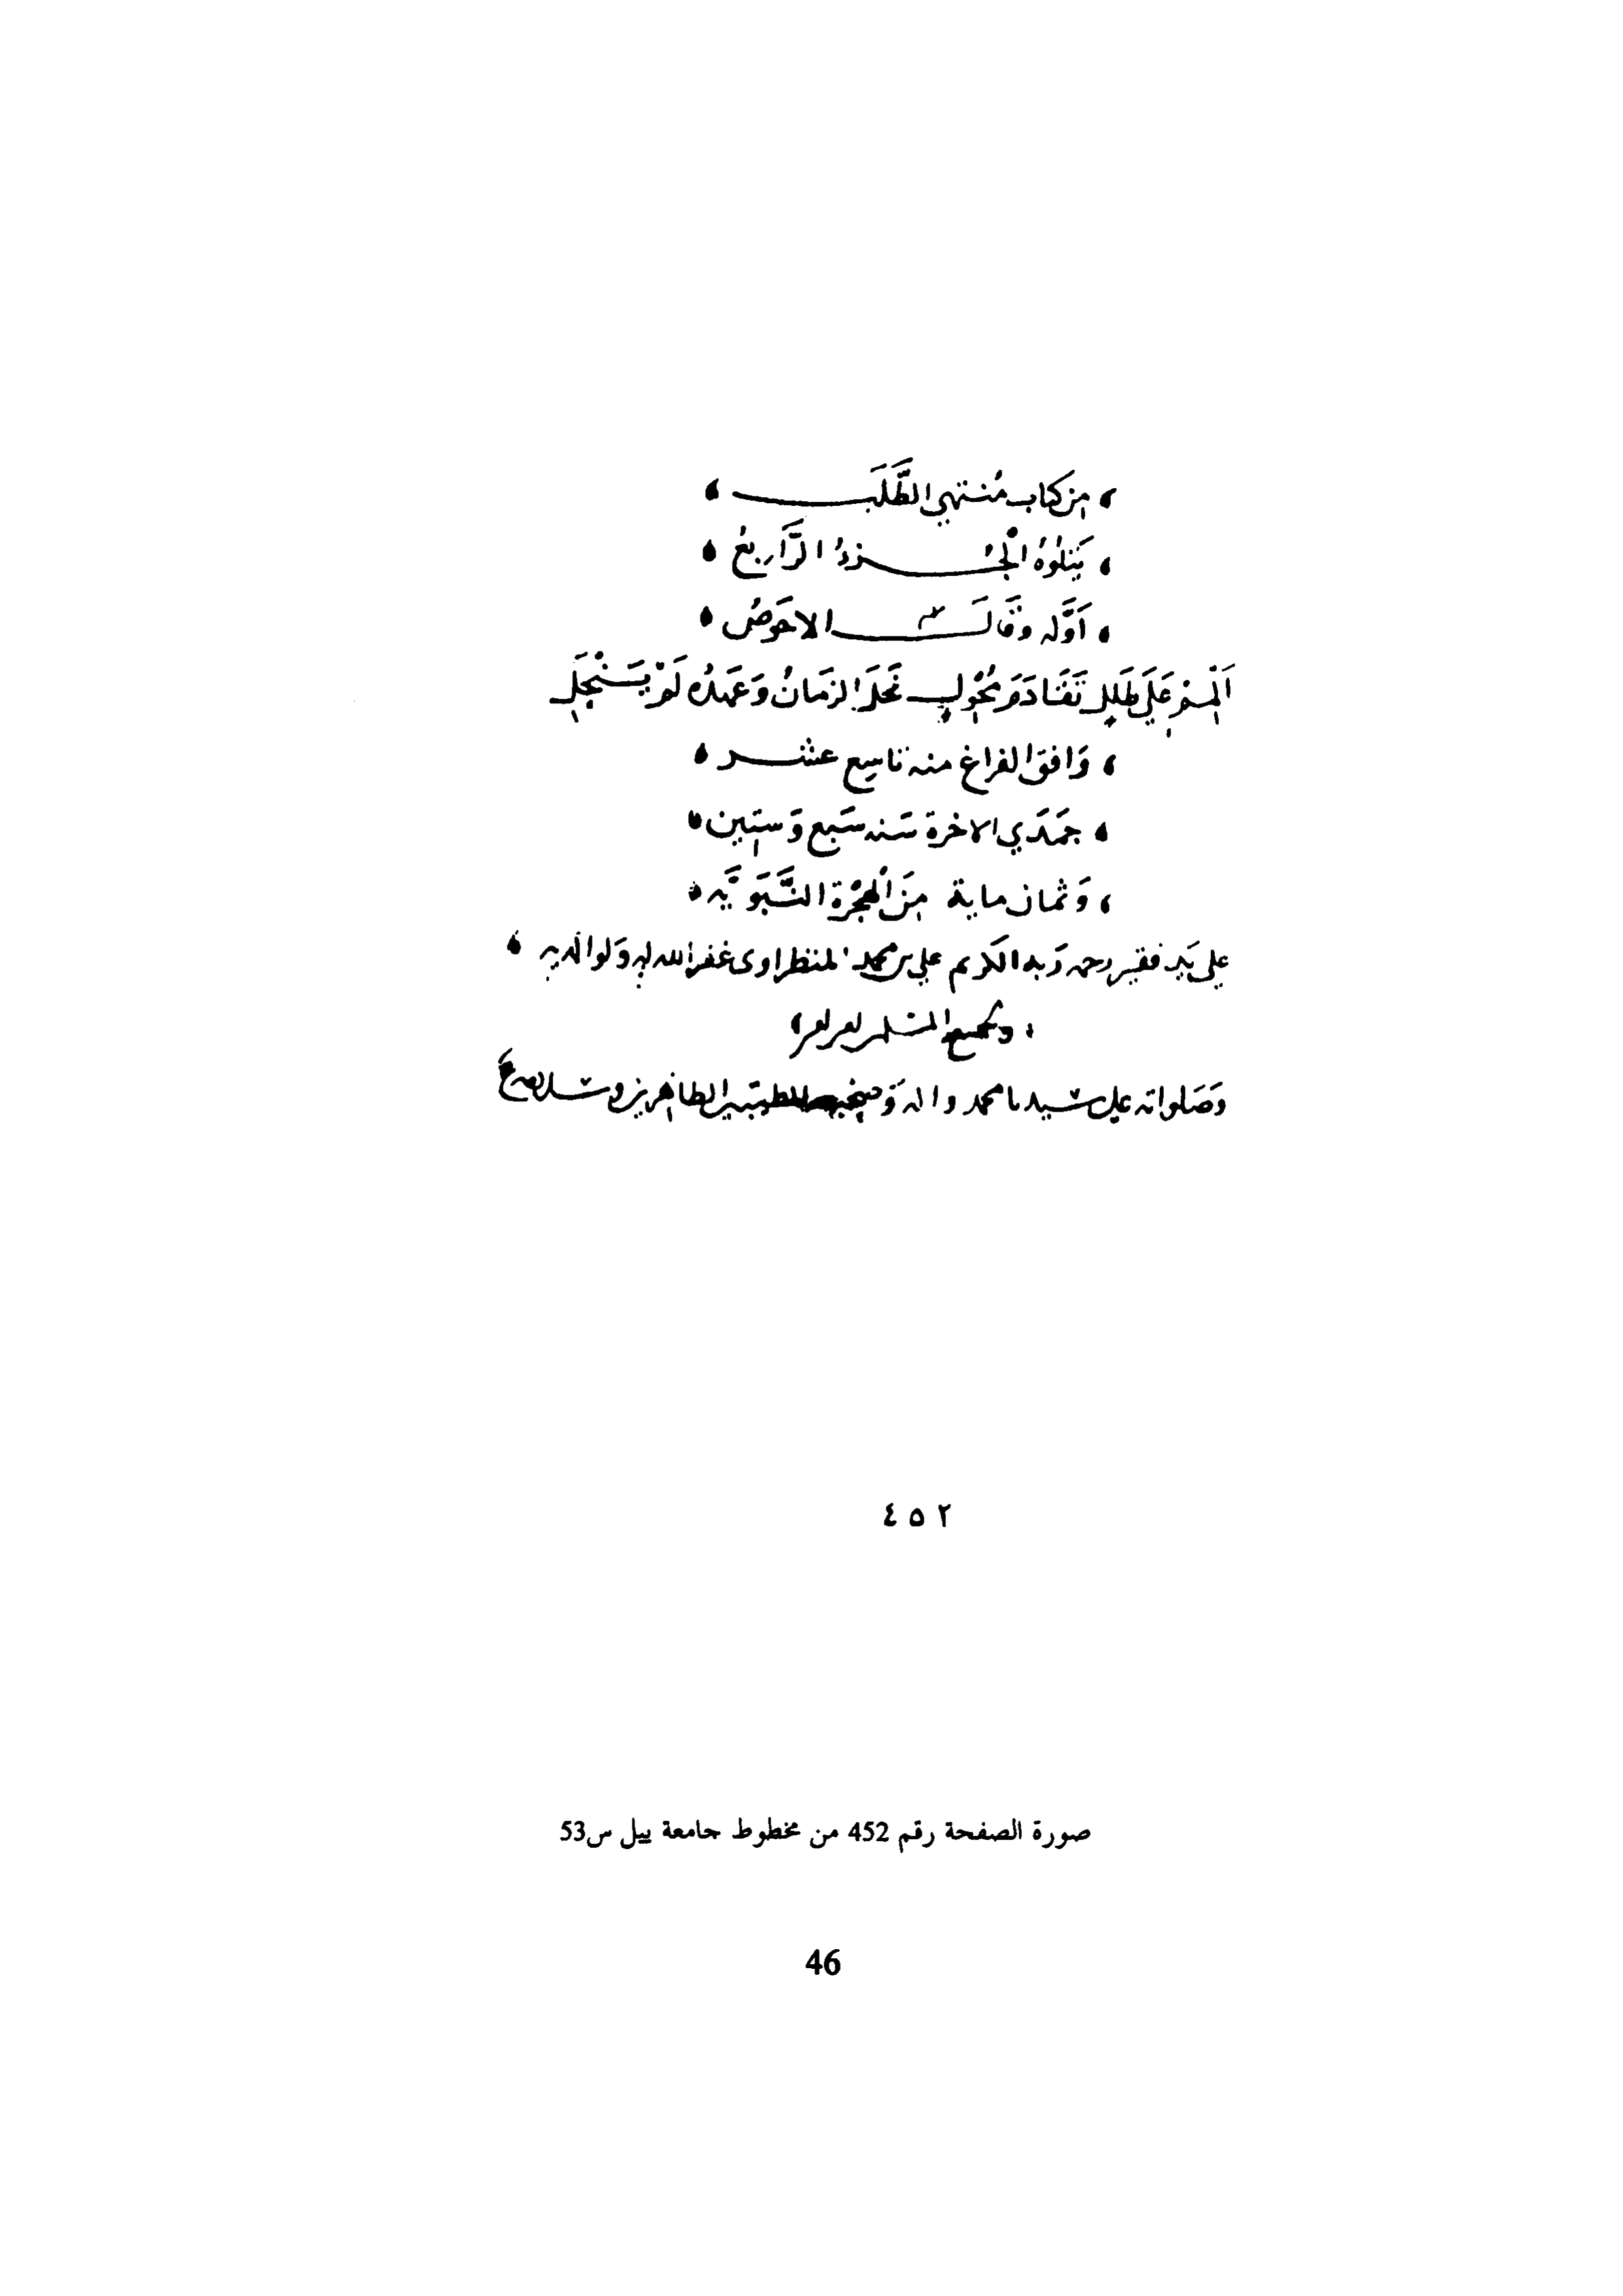 من كتاب مُنتهي الطَّلَب
يَتلوُهُ الْجُزءُ الرَّابِعُ
اَوَّله وقَالَ الاحَوصُ
اَلْمِمْ عَلَي طَلَلٍ تَقَادَمَ مُحْوِلِ نَحَلَ الزمَانُ وَعَهدُه لَمْ يَنْجَلِ
وَافق الفراغ منه تاسِع عشر
جمَدَي الاخرة سَنه سَبع وَستِين
وَثمان ماية مِنَ الْهِجْرَة النَّبَويَّه
علي يَد فقير رحمه رَبه الكريم علي بن محمد المنظراوى غفر الله له وَلوالديه
ولجميع المسلمين
وَصَلواته علي سيدنا محمد واله وَصحبه الطيبين الطاهرين وسلامه
٤٥٢
صورة الصفحة رقم 452 من مخطوط جامعة ييل س53
46